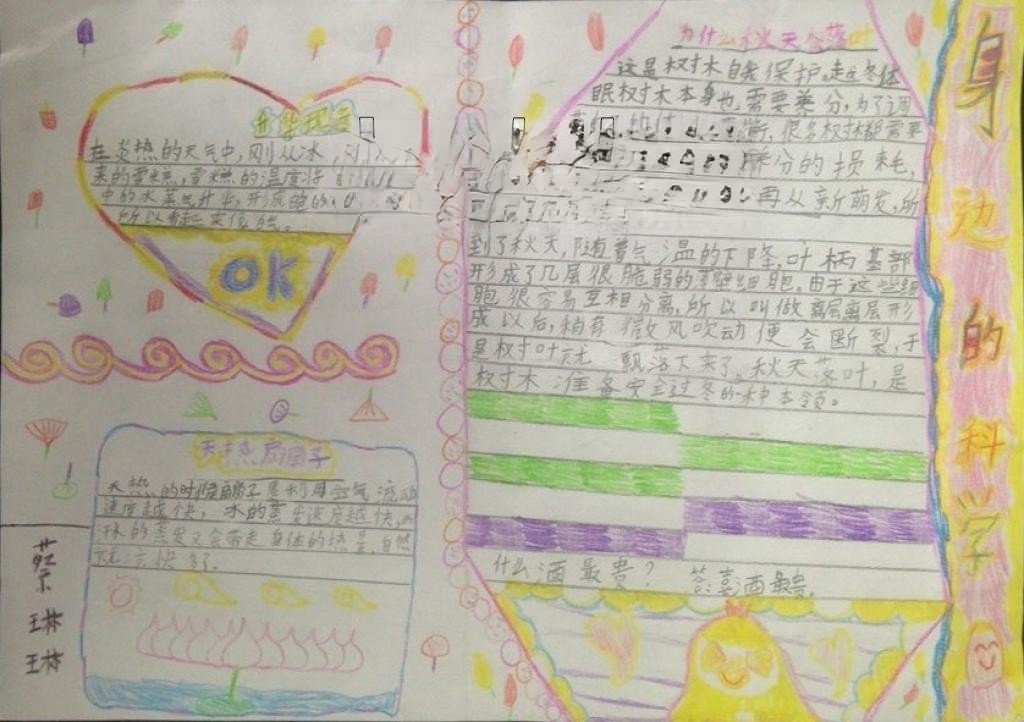 身边的科学
升华现象
在炎热的天气中，刚从冰
来的雪糕，雪糕的温度将
中的水蒸气升华，形成的
所以看起来像
OK
天热扇扇子
天热的时候扇扇子是利用空气流动
速度越快，水的蒸发速度越快，
体的蒸发又会带走身体的热量，自然
就凉快多了。
蔡琳琳
为什么秋天会落叶
这是树木自我保护。走近冬体
眠树木本身也需要养分，为了调
很多树木都需要
养分的损耗，
再从新萌发，所
到了秋天，随着气温的下降，叶柄基部
形成了几层很脆弱的薄壁细胞。由于这些细
胞很容易互相分离，所以叫做离层离层形
成以后，稍有微风吹动便会断裂，于
是树叶就飘落下来了。秋天落叶，是
树木准备安全过冬的一种本领。
什么酒最贵？答：喜酒最贵。